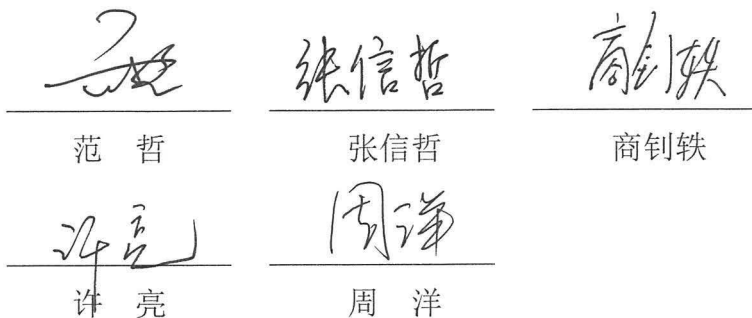 张信哲 商钊轶
范 哲 张信哲 商钊轶
许亮 周洋
许 亮 周 洋